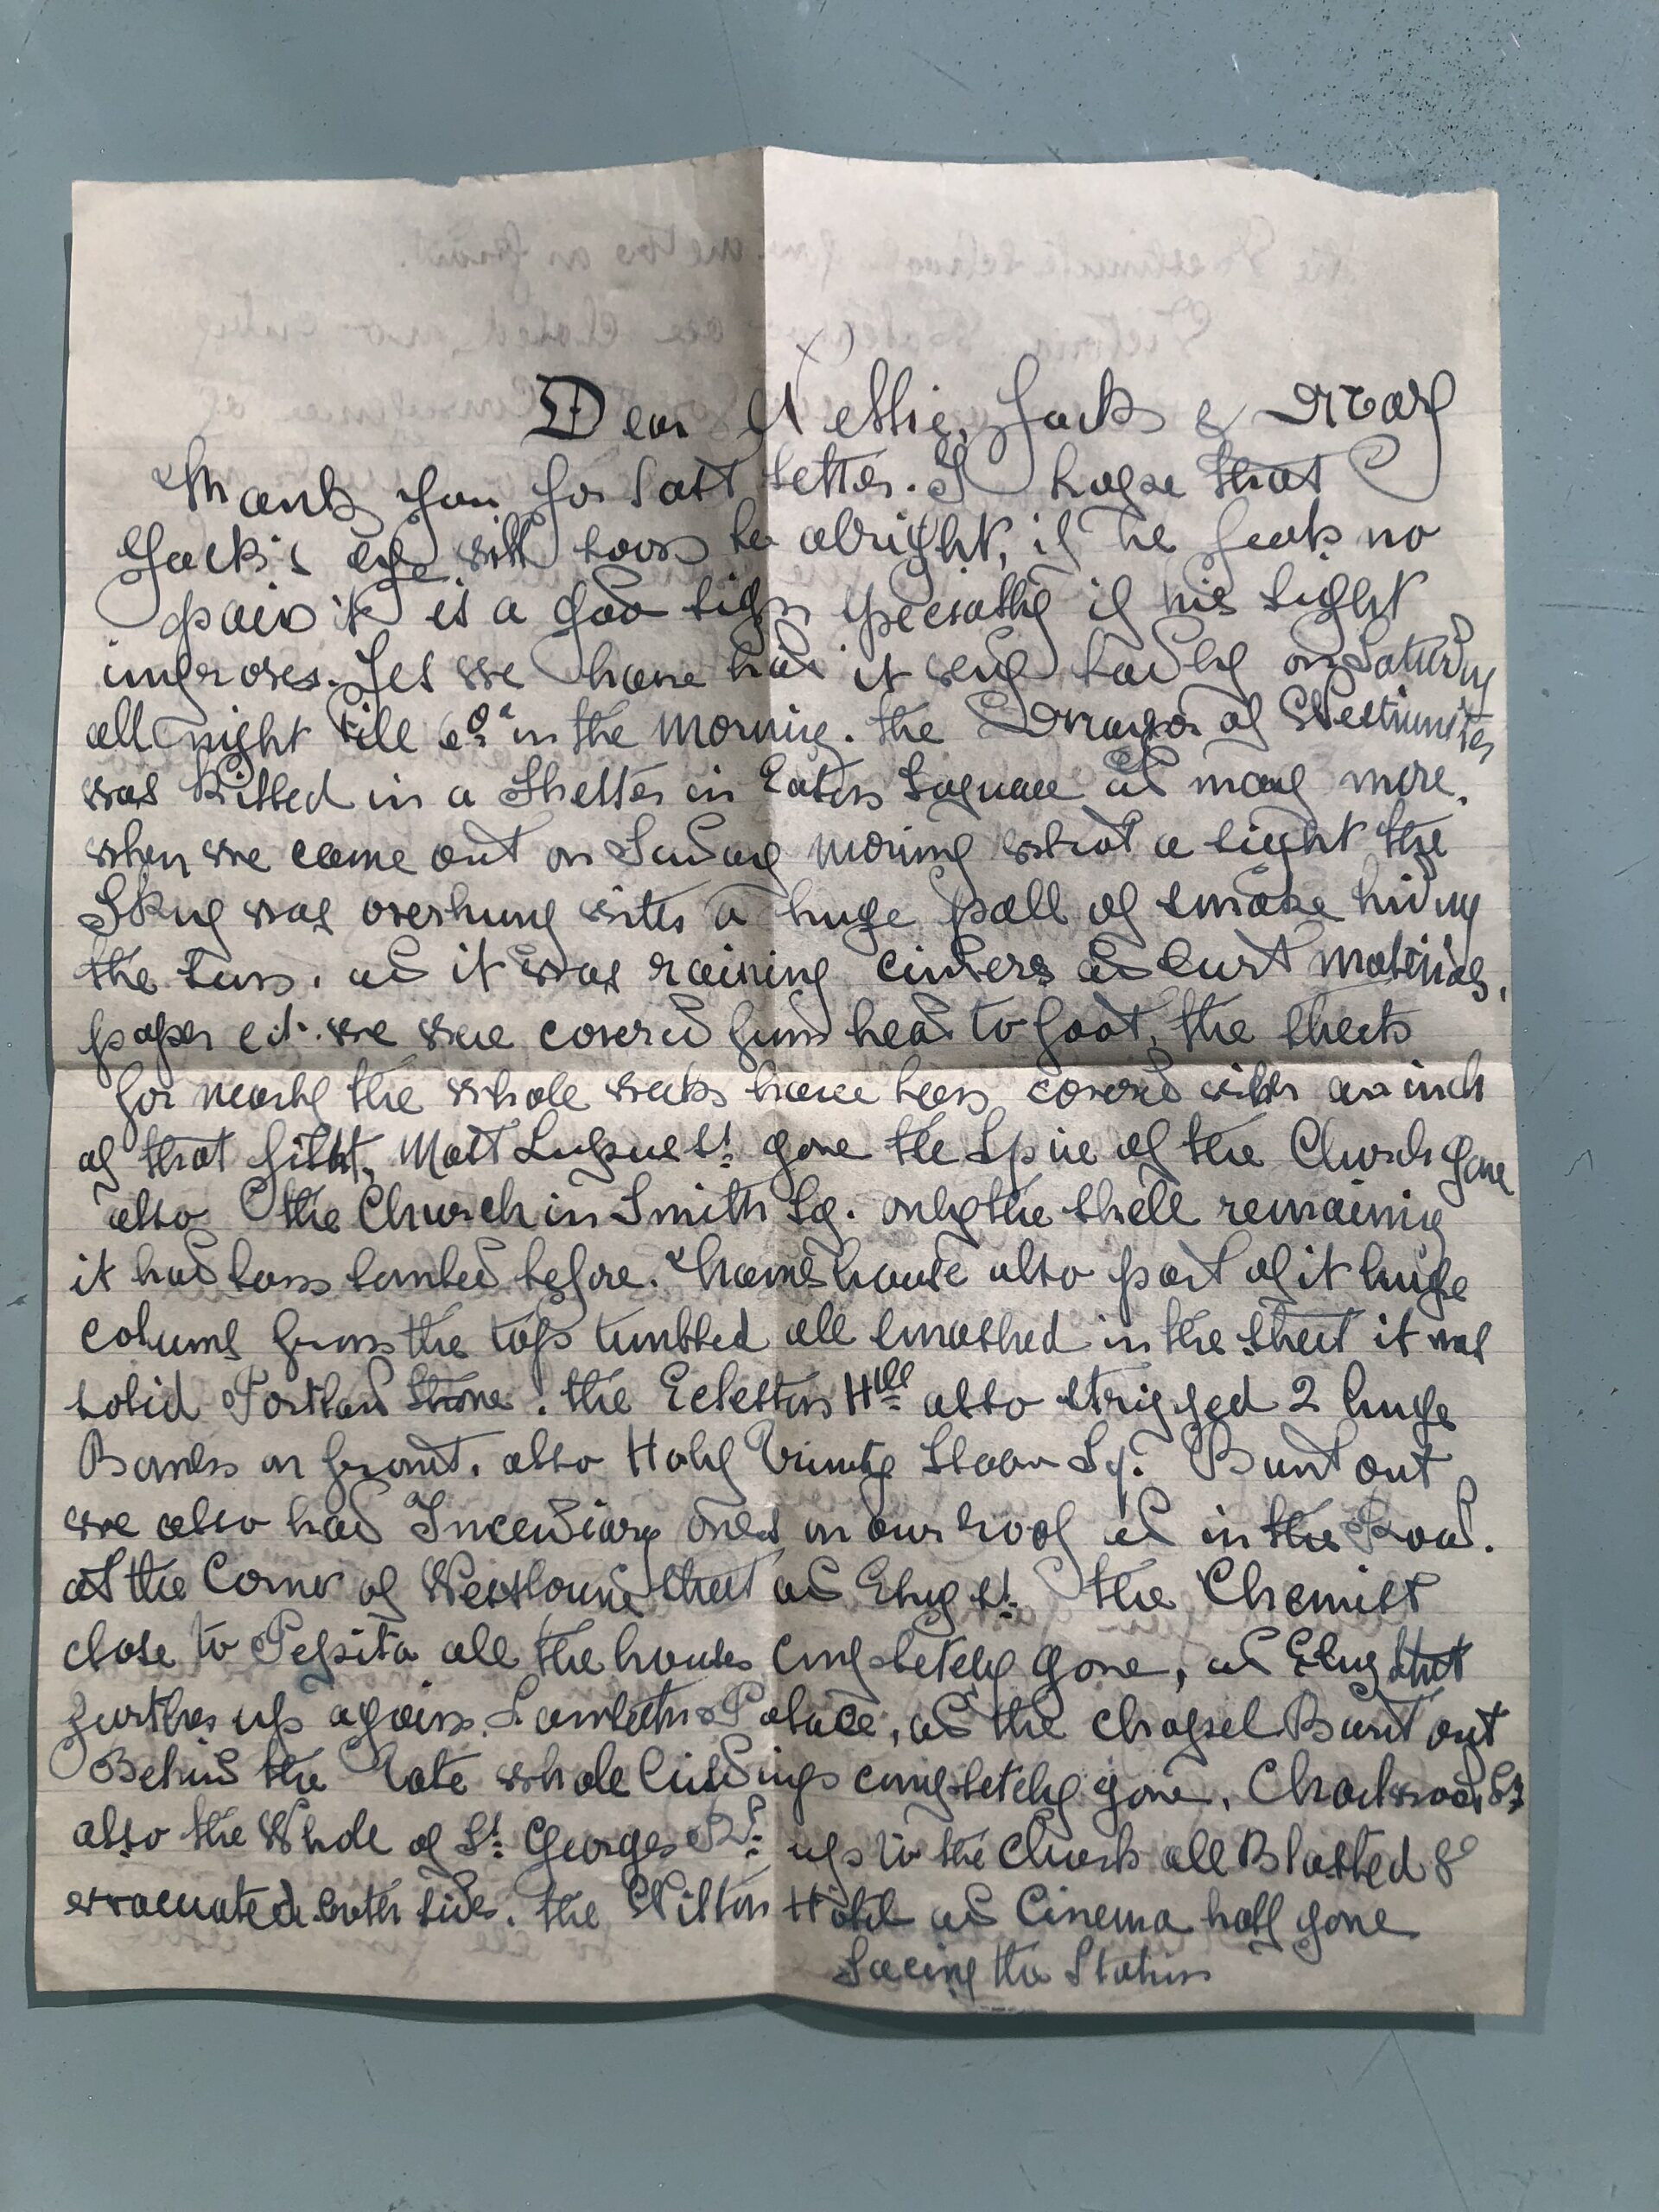 Dear Nellie, Jack & Mary
Thank you for last letter. I hope that
Jack's eye will soon be alright, if he feels no
pain it is a good sign specially if his sight
improves. Yes we have had it very badly on Saturday
all night till 6 in the morning. the Mayor of Westminster
was killed in a Shelter in Eaton Square and many more.
when we came out on Sunday morning what a sight the
Sky was overhung with a huge pall of smoke hiding
the sun. and it was raining cinders and burnt materials,
paper ect. we were covered from head to foot, the streets
for nearly the whole week have been covered with an inch
of that filth. Most Lupus St. gone the Spire of the Church gone
also the Church in Smith Sq. only the shell remaining
it had been bombed before. Thames house also part of it huge
colums from the top tumbled all smashed in the street it was
solid Portland Stone. the Eccleston Htll also stripped 2 huge
Bombs in front. also Holy Trinity Sloan Sq. Burnt out
we also had Incendiary ones on our roof and in the Road.
at the Corner of Westbourne street and Ebury St. the Chemist
close to Pepita all the houses completely gone, and Ebury street
further up again. Lambeth Palace, and the chapel Burnt out
Behind the Tate whole buildings completely gone,
also the Whole of St. Georges Rd. up to the Church all Blasted &
evacuated both sides. the Wilton Hotel and Cinema half gone
facing the Station